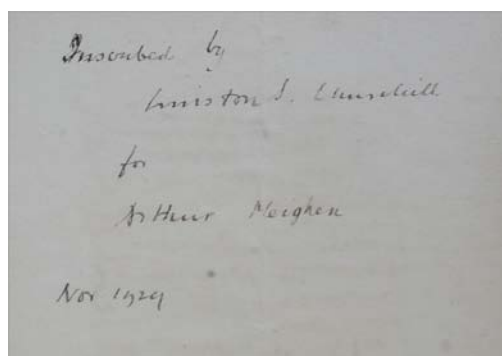 Inscribed by
Winston S. Churchill
for
Arthur Meighen
Nov 1929